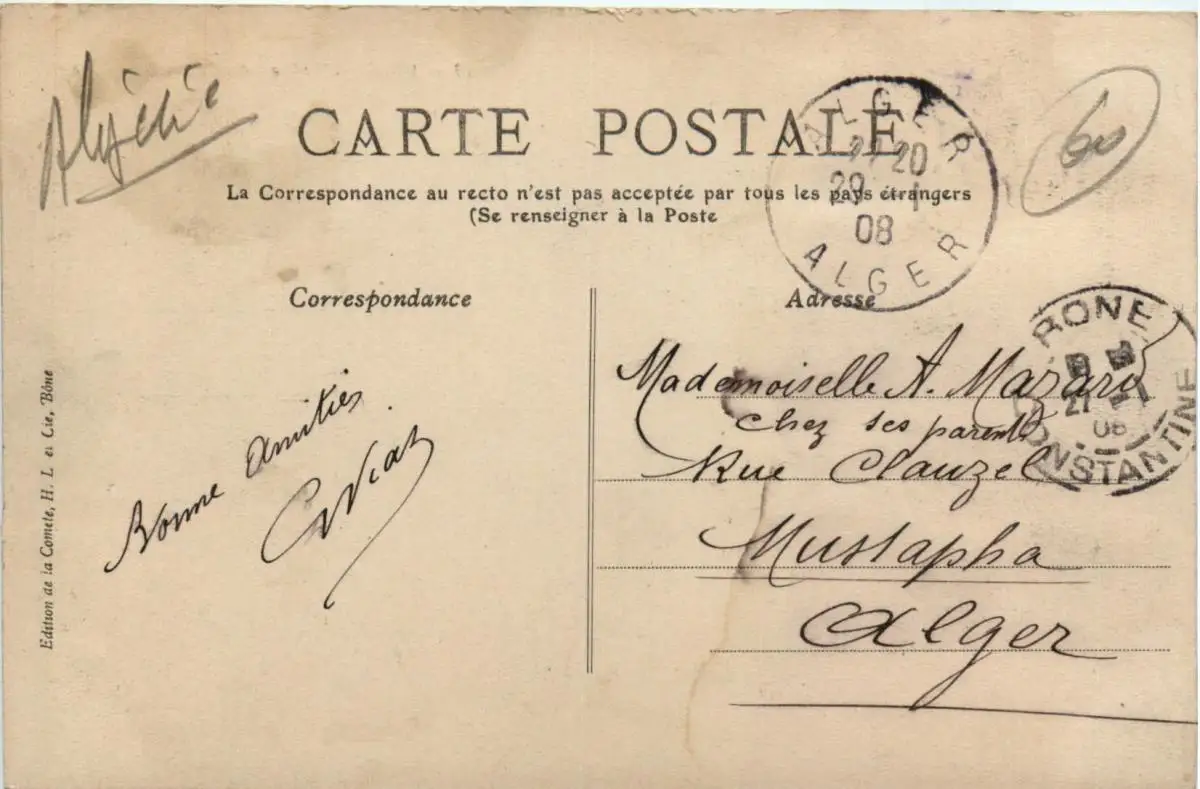 Algérie
60
CARTE POSTALE
La Correspondance au recto n'est pas acceptée par tous les pays étrangers
(Se renseigner à la Poste
ALGER
20
29 -1
08
ALGER
Correspondance
Adresse
BONE
08
CONSTANTINE
Bonne amitiés
Mademoiselle A.
chez ses parents
Rue Clauzel
Mustapha
Alger
Edition de la Comete, H. L. et Cie, Bône